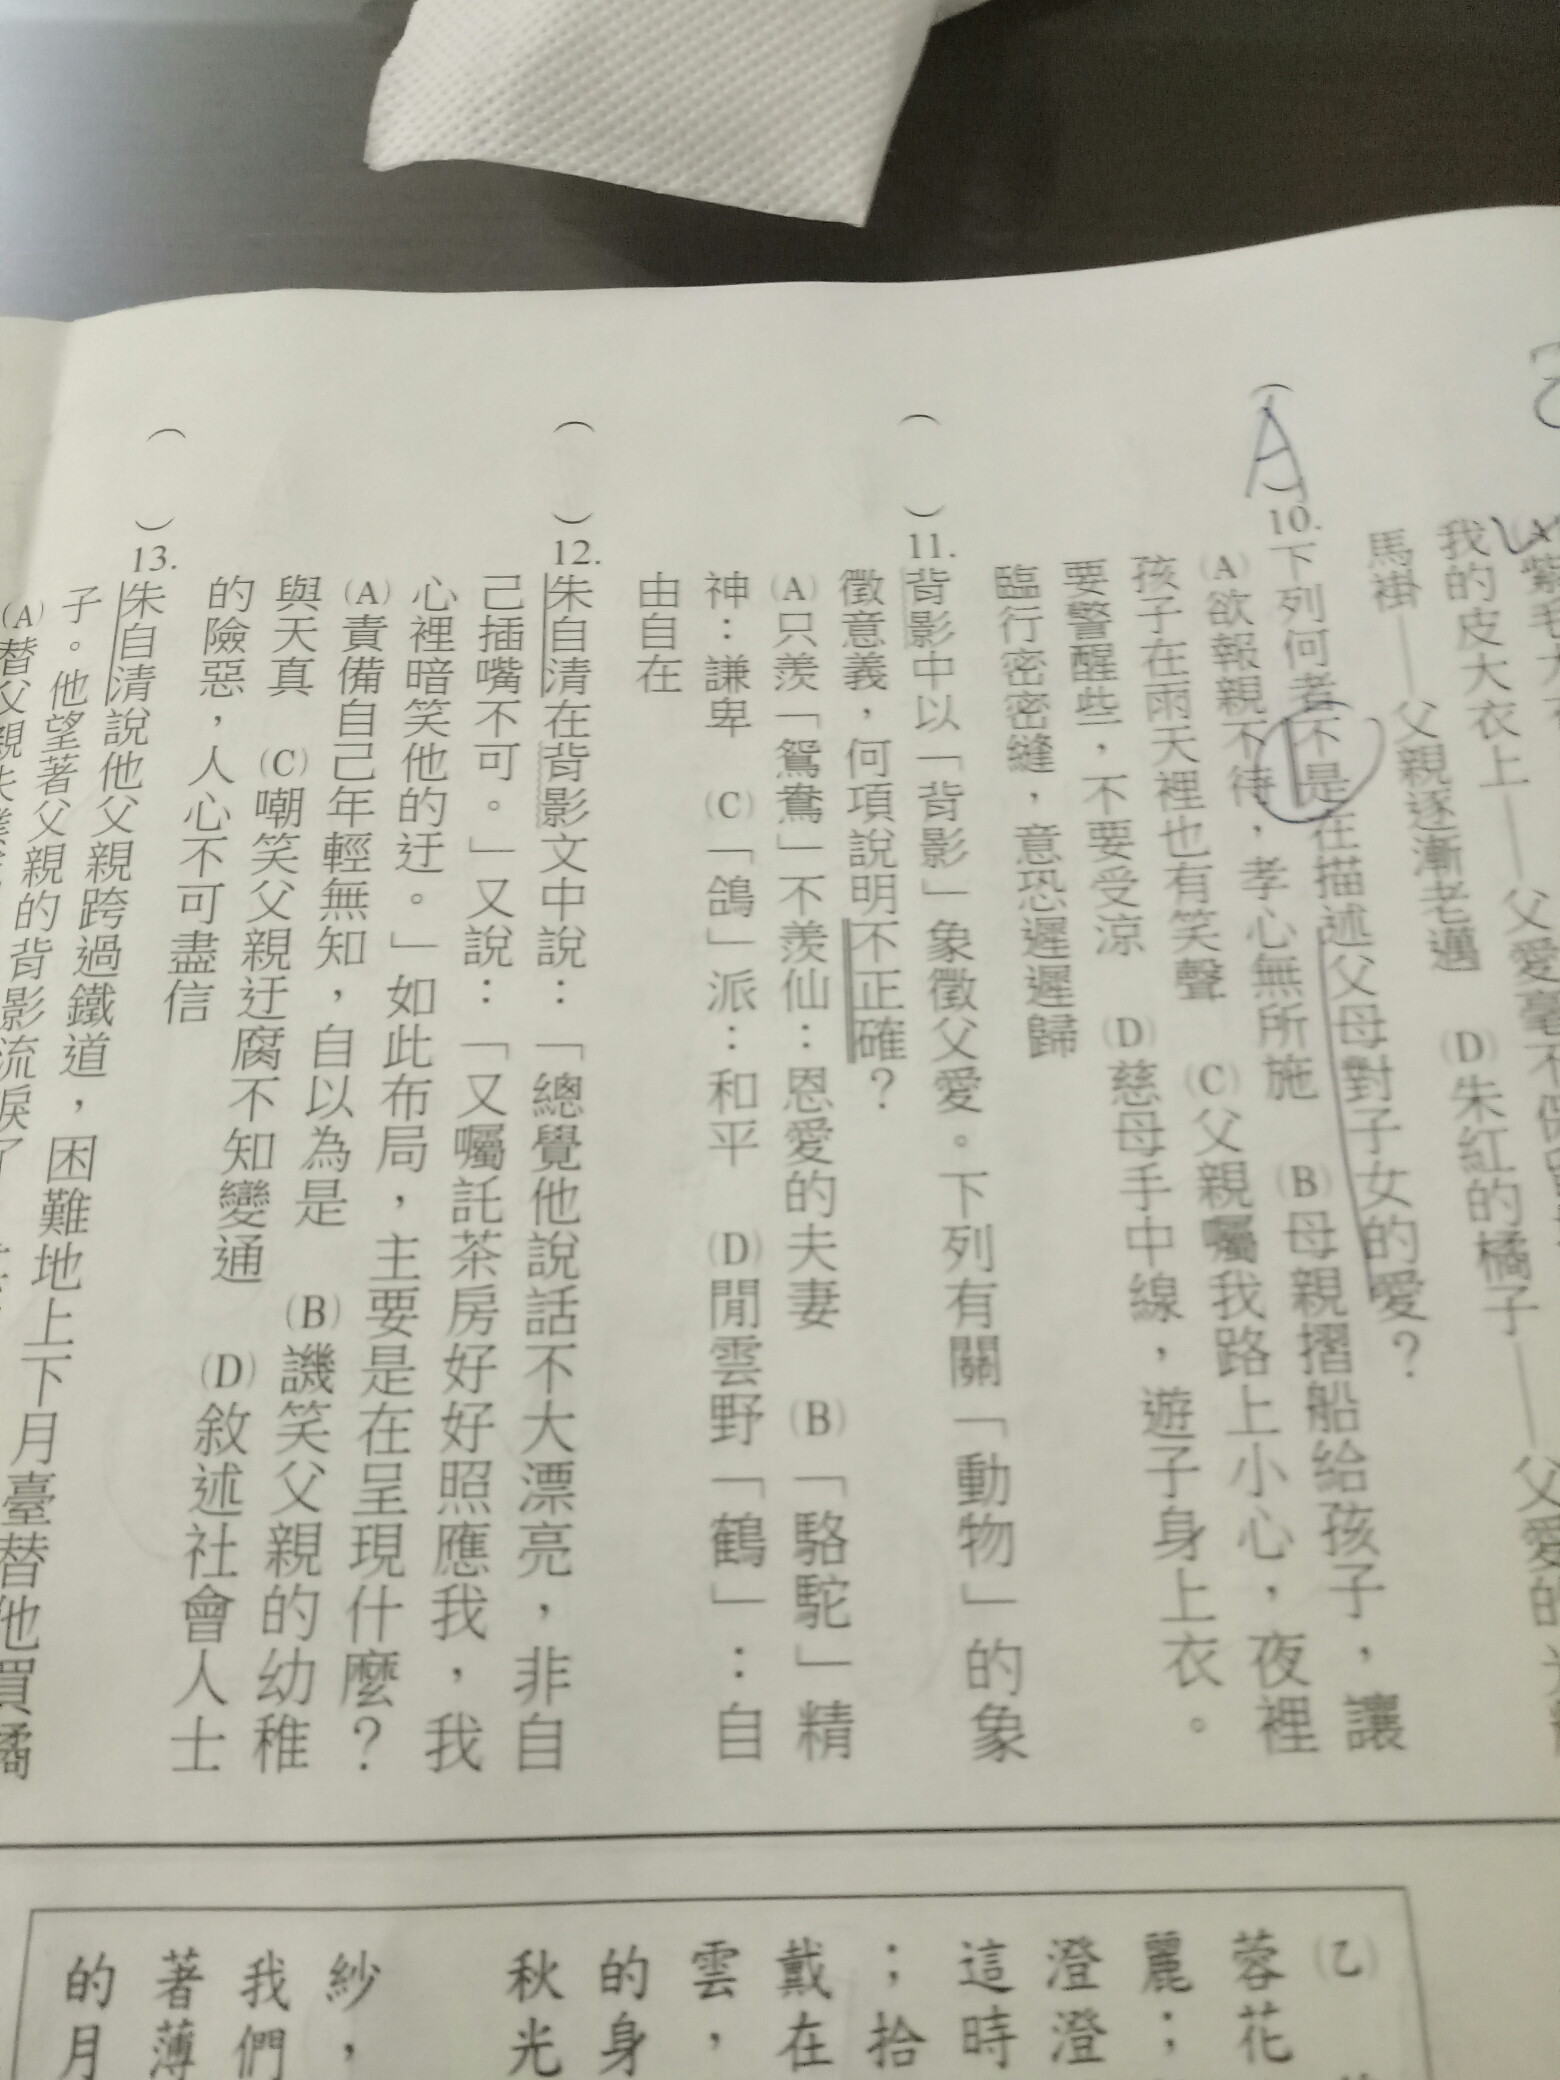 我的皮大衣上——父愛毫不保
馬褂——父親逐漸老邁 (D)朱紅的橘子——父愛的
(A)10.下列何者不是在描述父母對子女的愛？
(A)欲報親不待，孝心無所施 (B)母親摺船給孩子，讓
孩子在雨天裡也有笑聲 (C)父親囑我路上小心，夜裡
要警醒些，不要受涼 (D)慈母手中線，遊子身上衣。
臨行密密縫，意恐遲遲歸
( )11.背影中以「背影」象徵父愛。下列有關「動物」的象
徵意義，何項說明不正確？
(A)只羨「鴛鴦」不羨仙：恩愛的夫妻 (B)「駱駝」精
神：謙卑 (C)「鴿」派：和平 (D)閒雲野「鶴」：自
由自在
( )12.朱自清在背影文中說：「總覺他說話不大漂亮，非自
己插嘴不可。」又說：「又囑託茶房好好照應我，我
心裡暗笑他的迂。」如此布局，主要是在呈現什麼？
(A)責備自己年輕無知，自以為是 (B)譏笑父親的幼稚
與天真 (C)嘲笑父親迂腐不知變通 (D)敘述社會人士
的險惡，人心不可盡信
( )13.朱自清說他父親跨過鐵道，困難地上下月臺替他買橘
子。他望著父親的背影流淚了
(A)替父親失
(乙)
蓉花
麗；
澄澄
這時
；拾
戴在
雲，
的身
秋光
紗，
我們
著薄
的月